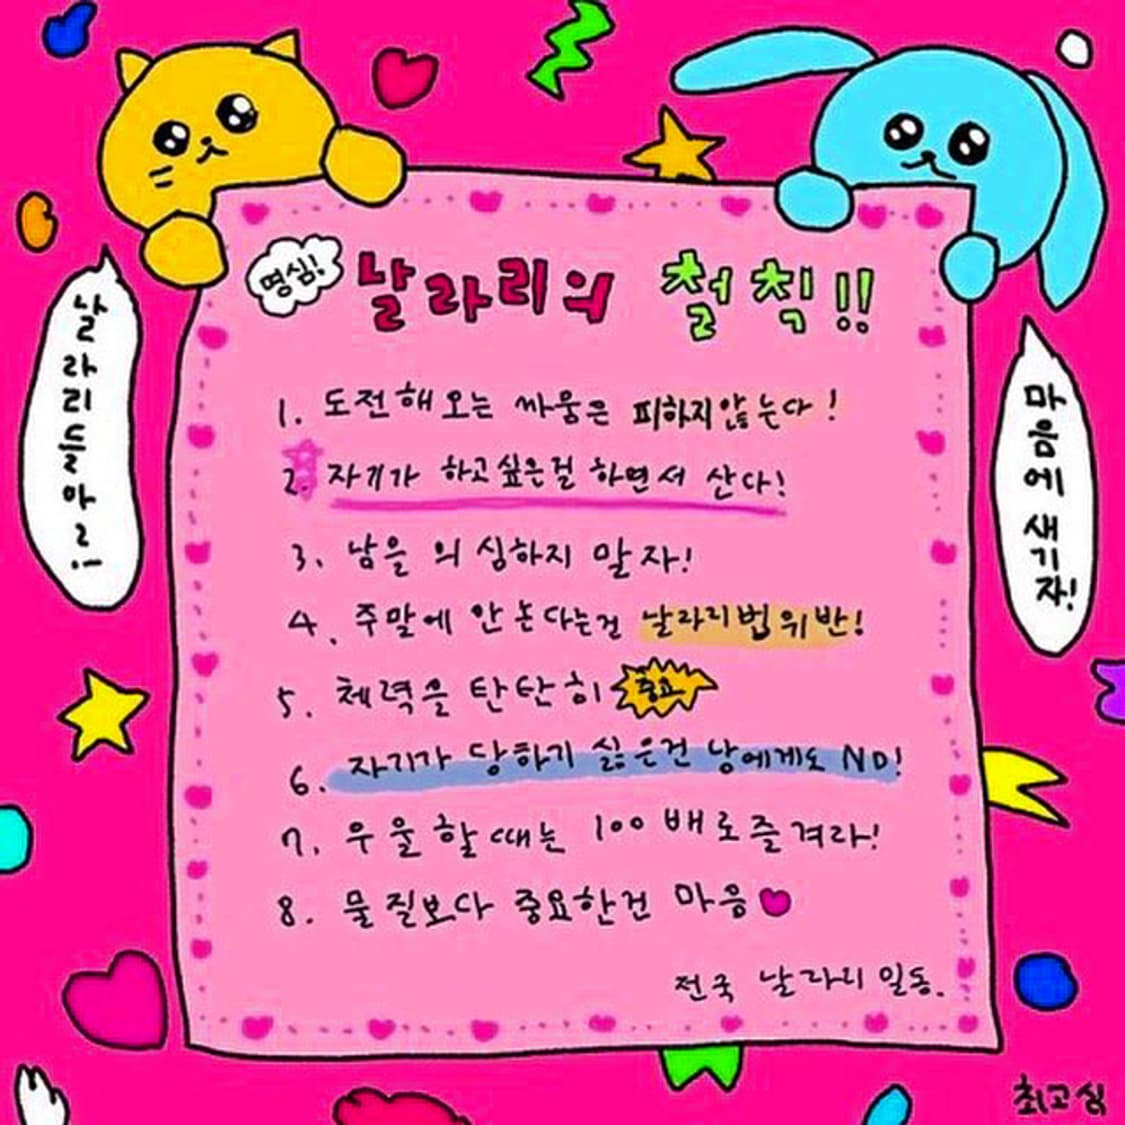 명심! 날라리의 철칙!!
날라리들아!
마음에 새기자!
1. 도전해오는 싸움은 피하지않는다!
2. 자기가 하고싶은걸 하면서 산다!
3. 남을 의심하지 말자!
4. 주말에 안논다는건 날라리법위반!
5. 체력을 탄탄히 중요
6. 자기가 당하기 싫은건 남에게도 NO!
7. 우울할때는 100배로즐겨라!
8. 물질보다 중요한건 마음
전국 날라리 일동.
최고심